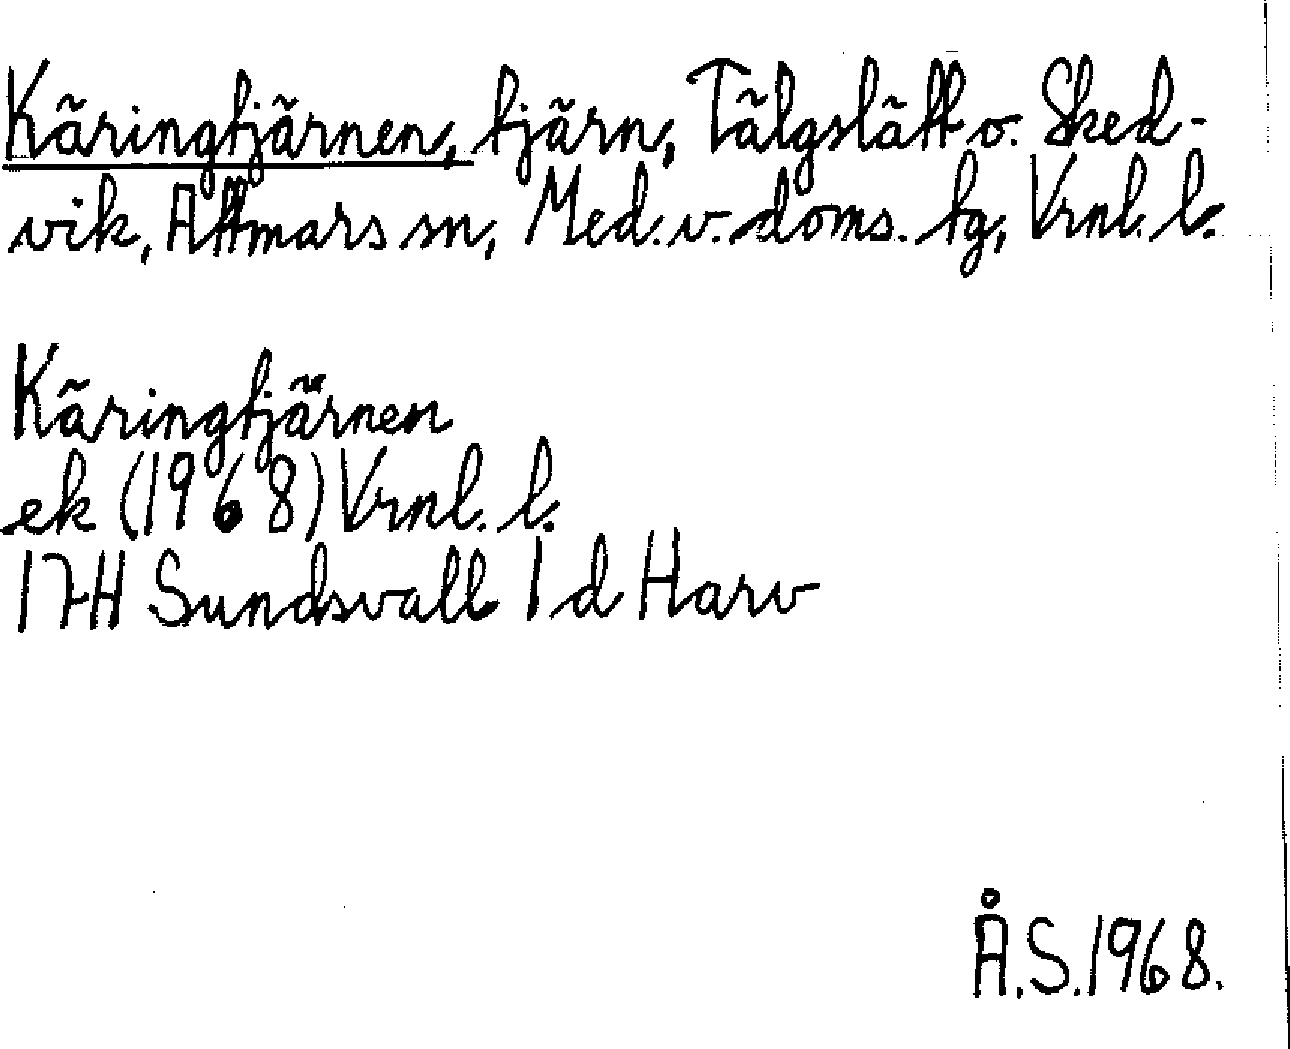 Käringtjärnen, tjärn, Tälgslätt o. Sked-
vik, Attmars sn, Med. v. doms. tg, Vrnl. l.
Käringtjärnen
ek (1968) Vrnl. l.
17H Sundsvall 1 d Harv
Å.S. 1968.